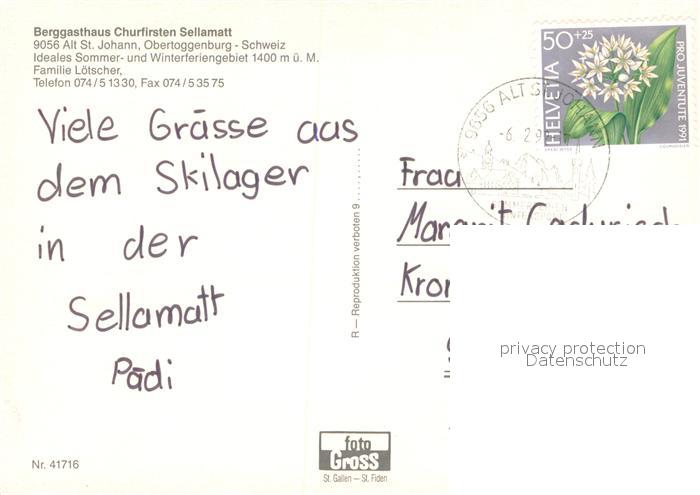 Berggasthaus Churfirsten Sellamatt
9056 Alt St. Johann, Obertoggenburg - Schweiz
Ideales Sommer- und Winterferiengebiet 1400 m ü. M.
Familie Lötscher,
Telefon 074/5 13 30, Fax 074/5 35 75
Viele Grüsse aus
dem Skilager
in der
Sellamatt
Pädi
Nr. 41716
R — Reproduktion verboten 9
foto
Gross
St. Gallen — St. Fiden
50+25
HELVETIA
PRO JUVENTUTE 1991
COURVOISIER
9656 ALT ST. JOHANN
-6. 2. 9
Frau
Margrit
privacy protection
Datenschutz